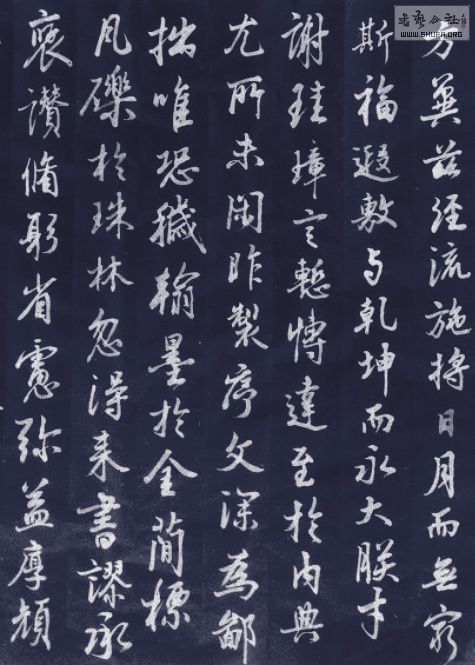 方冀茲經流施將日月而無窮
斯福遐敷与乾坤而永大朕才
謝珪璋言慙博達至於內典
尤所未閑昨製序文深為鄙
拙唯恐穢翰墨於金簡標
凡礫於珠林忽得来書謬承
褒讚脩躬省慮弥益厚顏
書藝公社
WWW.SHUFA.ORG